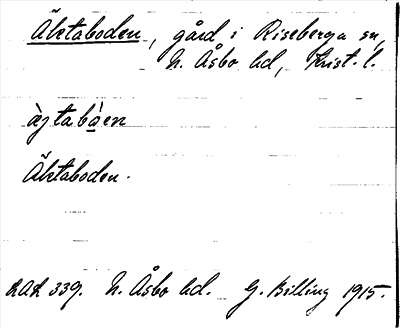 Äktaboden, gård i Riseberga sn,
N. Åsbo hd, Krist. l.
àjtabàen
Äktaboden.
RAÄ 339. N. Åsbo hd. G. Billing 1915.